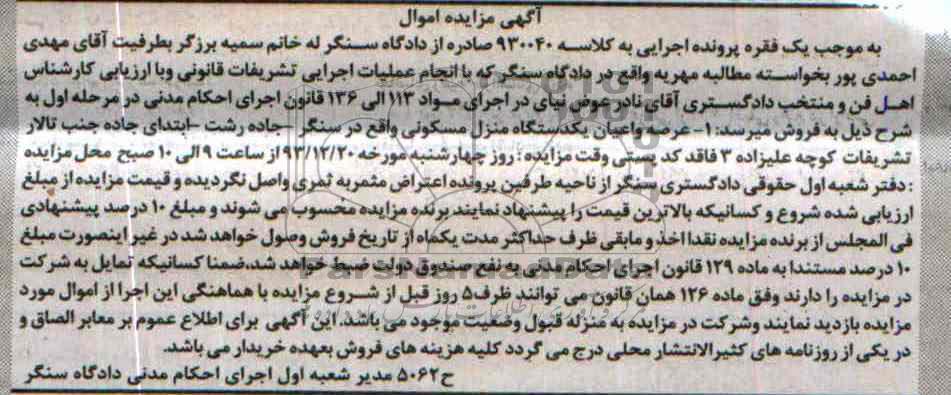 آگهی مزایده اموال
به موجب یک فقره پرونده اجرایی به کلاسه ۹۳۰۰۴۰ صادره از دادگاه سنگر له خانم سمیه برزگر بطرفیت آقای مهدی
احمدی پور بخواسته مطالبه مهریه واقع در دادگاه سنگر که با انجام عملیات اجرایی تشریفات قانونی وبا ارزیابی کارشناس
اهل فن و منتخب دادگستری آقای نادر عوض نیای در اجرای مواد ۱۱۳ الی ۱۳۶ قانون اجرای احکام مدنی در مرحله اول به
شرح ذیل به فروش میرسد: ۱- عرصه واعیان یکدستگاه منزل مسکونی واقع در سنگر -جاده رشت -ابتدای جاده جنب تالار
تشریفات کوچه علیزاده ۳ فاقد کد پستی وقت مزایده : روز چهارشنبه مورخه ۹۳/۱۲/۲۰ از ساعت ۹ الی ۱۰ صبح محل مزایده
: دفتر شعبه اول حقوقی دادگستری سنگر از ناحیه طرفین پرونده اعتراض مثمربه ثمری واصل نگردیده و قیمت مزایده از مبلغ
ارزیابی شده شروع و کسانیکه بالاترین قیمت را پیشنهاد نمایند برنده مزایده محسوب می شوند و مبلغ ۱۰ درصد پیشنهادی
فی المجلس از برنده مزایده نقدا اخذ و مابقی ظرف حداکثر مدت یکماه از تاریخ فروش وصول خواهد شد در غیر اینصورت مبلغ
۱۰ درصد مستندا به ماده ۱۲۹ قانون اجرای احکام مدنی به نفع صندوق دولت ضبط خواهد شد،ضمنا کسانیکه تمایل به شرکت
در مزایده را دارند وفق ماده ۱۲۶ همان قانون می توانند ظرف۵ روز قبل از شروع مزایده با هماهنگی این اجرا از اموال مورد
مزایده بازدید نمایند وشرکت در مزایده به منزله قبول وضعیت موجود می باشد. این آگهی برای اطلاع عموم بر معابر الصاق و
در یکی از روزنامه های کثیرالانتشار محلی درج می گردد کلیه هزینه های فروش بعهده خریدار می باشد.
ح۵۰۶۲ مدیر شعبه اول اجرای احکام مدنی دادگاه سنگر